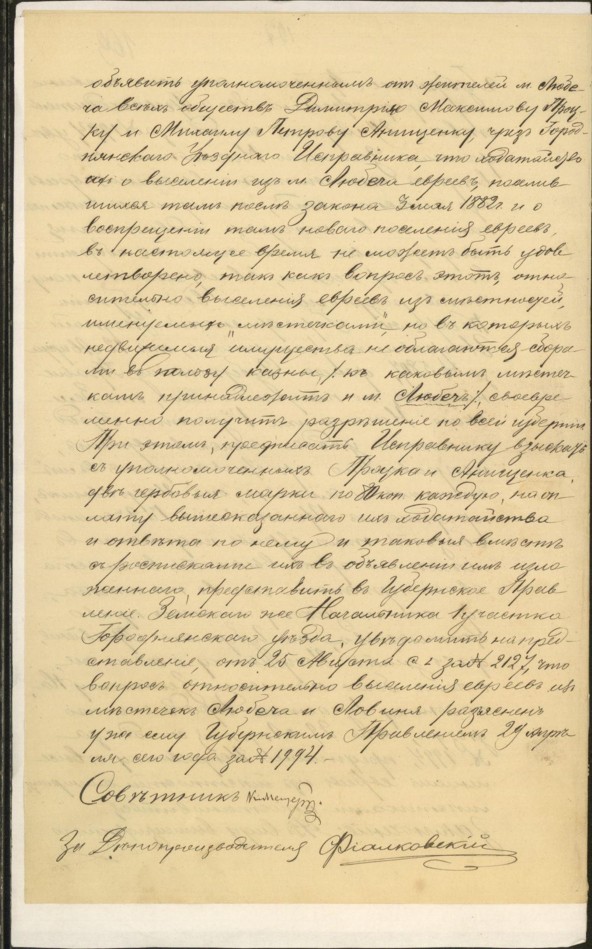 объявить уполномоченнымъ отъ жителей м. Любе-
ча всѣхъ обществъ Димитрію Максимову Проц-
ку и Михаилу Петрову Анищенку, чрезъ Город-
нянскаго Уѣзднаго Исправника, что ходатайство
ихъ о выселеніи изъ м. Любеча евреевъ, посилив-
шихся тамъ послѣ закона 3 мая 1882 г. и о
воспрещеніи тамъ новаго поселенія евреевъ,
въ настоящее время не можетъ быть удов-
летворено, такъ какъ вопросъ этотъ, отно-
сительно выселенія евреевъ изъ мѣстностей,
именуемыхъ „мѣстечками", но въ которыхъ
недвижимыя имущества не облагаются сбора-
ми въ пользу казны, /: къ каковымъ мѣстеч-
камъ принадлежитъ и м. Любечъ :/, своевре-
менно получитъ разрѣшеніе по всей губерніи
При этомъ, предписать Исправнику взыскать
съ уполномоченныхъ Процка и Анищенка,
двѣ гербовыя марки по 80 коп. каждую, на оп-
лату вышесказаннаго ихъ ходатайства
и отвѣта по нему и таковыя вмѣстѣ
съ росписками ихъ въ объявленіи имъ изло-
женнаго, представить въ Губернское Прав-
леніе. Земскаго же Начальника 1 участка
Городнянскаго уѣзда, увѣдомить на пред-
ставленіе, отъ 25 Марта с. г. за № 2127, что
вопросъ относительно выселенія евреевъ изъ
мѣстечекъ Любеча и Ловиня разъясненъ
уже ему Губернскимъ Правленіемъ 29 апрѣ-
ля сего года за № 1994.-
Совѣтникъ
За Дѣлопроизводителя Фіалковскій